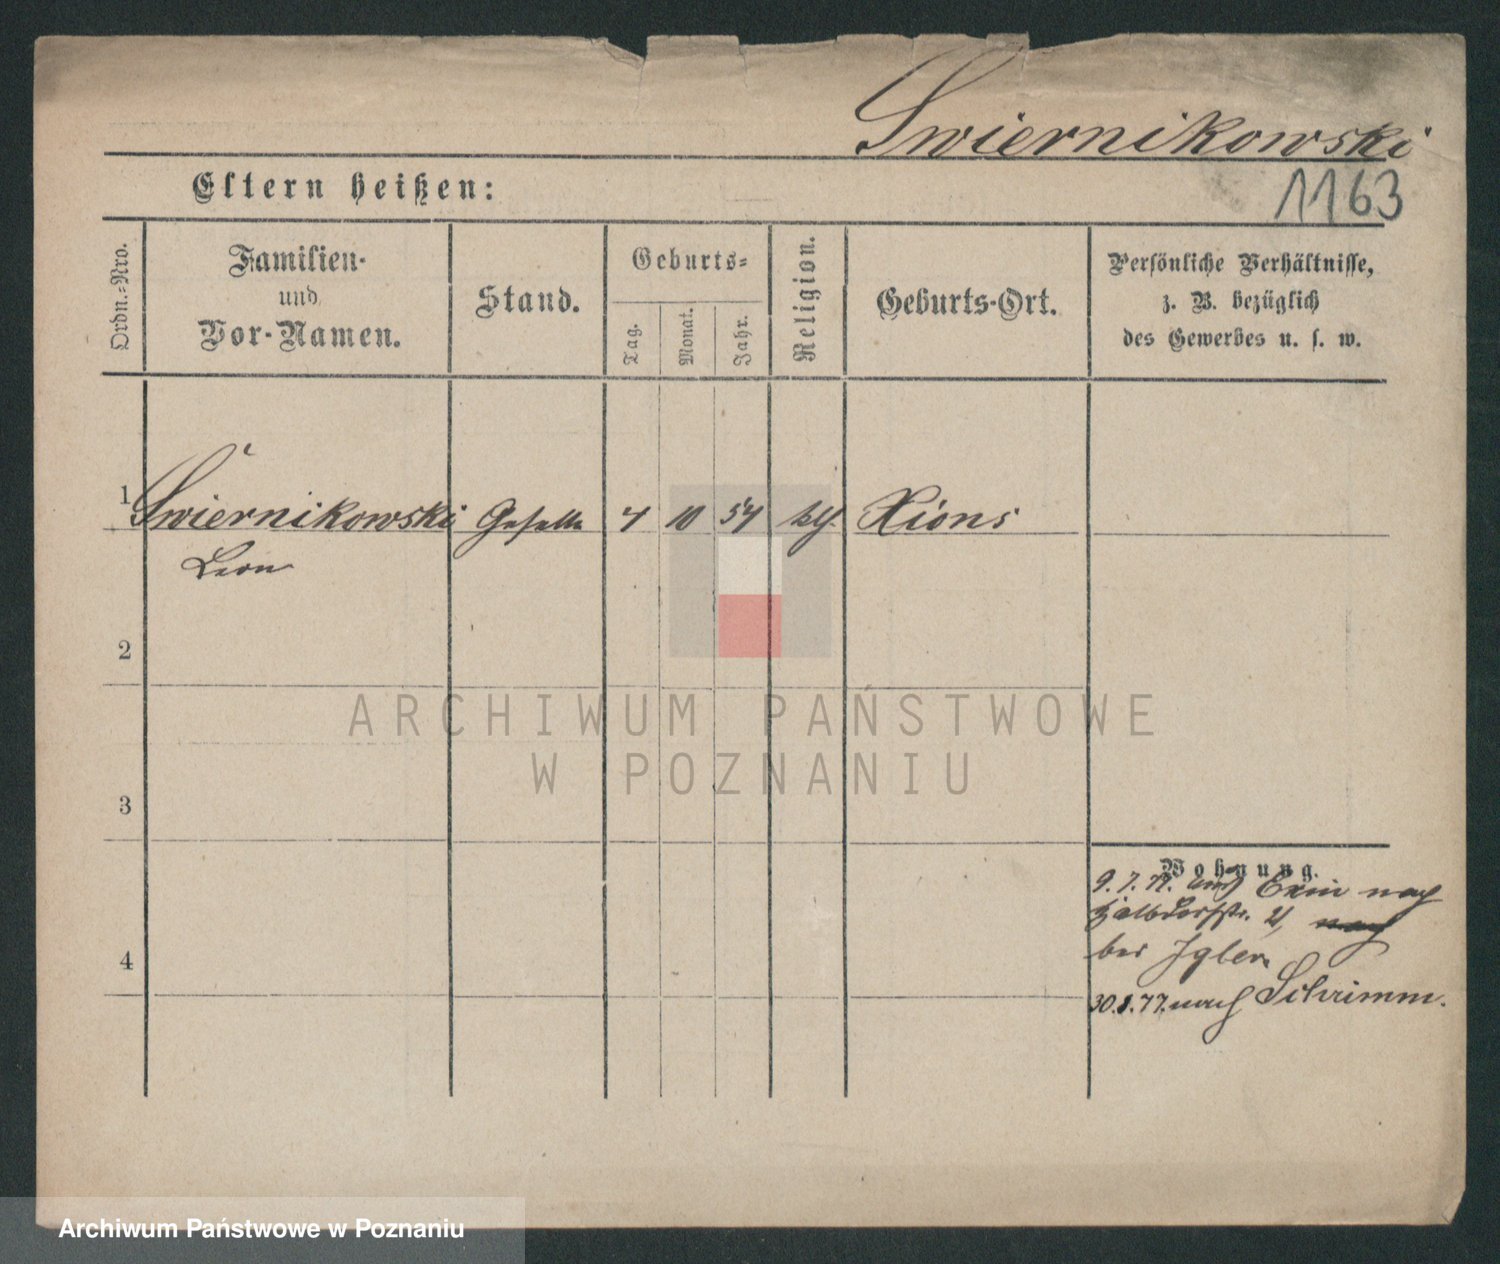 Swiernikowski
Eltern heißen:
1163
Ordn.-Nro.
Familien-
und
Vor-Namen.
Stand.
Geburts-
Tag.
Monat.
Jahr.
Religion.
Geburts-Ort.
Persönliche Verhältnisse,
z. B. bezüglich
des Gewerbes u. s. w.
1 Swiernikowski Geselle 4 10 54 kth. Xions
Leon
2
3
4
Wohnung.
9.7.77. aus Exin nach
Halbdorfstr. nach
bei Igler
30.8.77. nach Schrimm.
ARCHIWUM PAŃSTWOWE
W POZNANIU
Archiwum Państwowe w Poznaniu